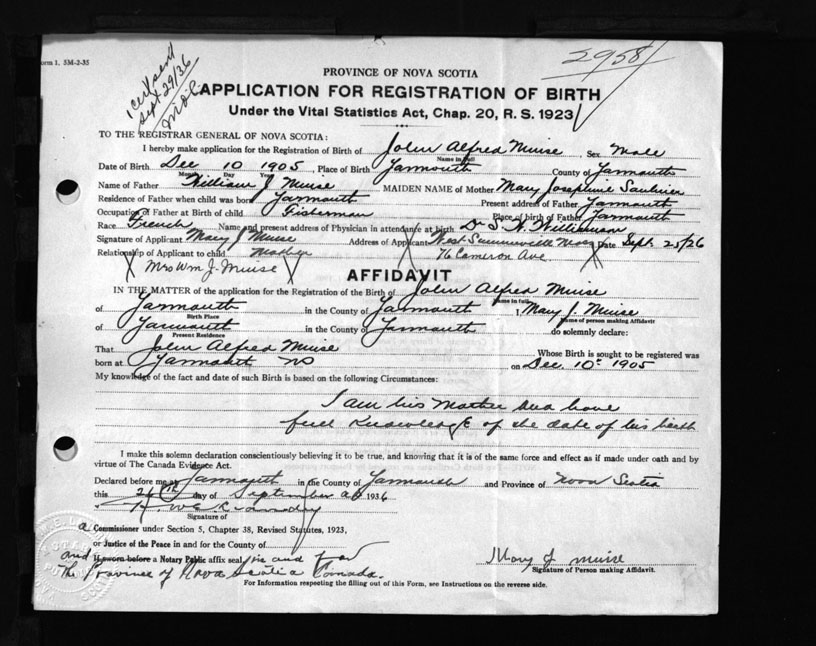 orm 1. 5M-2-35
2958
1 cert sent
Sept 29/36
PROVINCE OF NOVA SCOTIA
APPLICATION FOR REGISTRATION OF BIRTH
Under the Vital Statistics Act, Chap. 20, R. S. 1923
TO THE REGISTRAR GENERAL OF NOVA SCOTIA:
I hereby make application for the Registration of Birth of John Alfred Muise Sex Male
Name in full
Date of Birth Dec 10 1905, Place of Birth Yarmouth County of Yarmouth
Month Day Year
Name of Father William J Muise MAIDEN NAME of Mother Mary Josephine Saulnier
Residence of Father when child was born Yarmouth Present address of Father Yarmouth
Occupation of Father at Birth of child Fisherman Place of birth of Father Yarmouth
Race French Name and present address of Physician in attendance at birth Dr S. W. Williamson
Signature of Applicant Mary J Muise Address of Applicant West Mass Date Sept 25/26
Relationship of Applicant to child Mother 76 Cameron Ave
Mrs Wm J. Muise
AFFIDAVIT
IN THE MATTER of the application for the Registration of the Birth of John Alfred Muise
Name in full
of Yarmouth in the County of Yarmouth I Mary J. Muise
Birth Place Name of person making Affidavit
of Yarmouth in the County of Yarmouth do solemnly declare:
Present Residence
That John Alfred Muise Whose Birth is sought to be registered was
born at Yarmouth NS on Dec. 10 1905
My knowledge of the fact and date of such Birth is based on the following Circumstances:
I am his Mother and have
full knowledge of the date of his birth
I make this solemn declaration conscientiously believing it to be true, and knowing that it is of the same force and effect as if made under oath and by
virtue of The Canada Evidence Act.
Declared before me at Yarmouth in the County of Yarmouth and Province of Nova Scotia
this 26th day of September AD 1936
Signature of
a Commissioner under Section 5, Chapter 38, Revised Statutes, 1923,
or Justice of the Peace in and for the County of
and If sworn before a Notary Public affix seal, in and for
The Province of Nova Scotia Canada.
Mary J muise
Signature of Person making Affidavit.
For Information respecting the filling out of this Form, see Instructions on the reverse side.